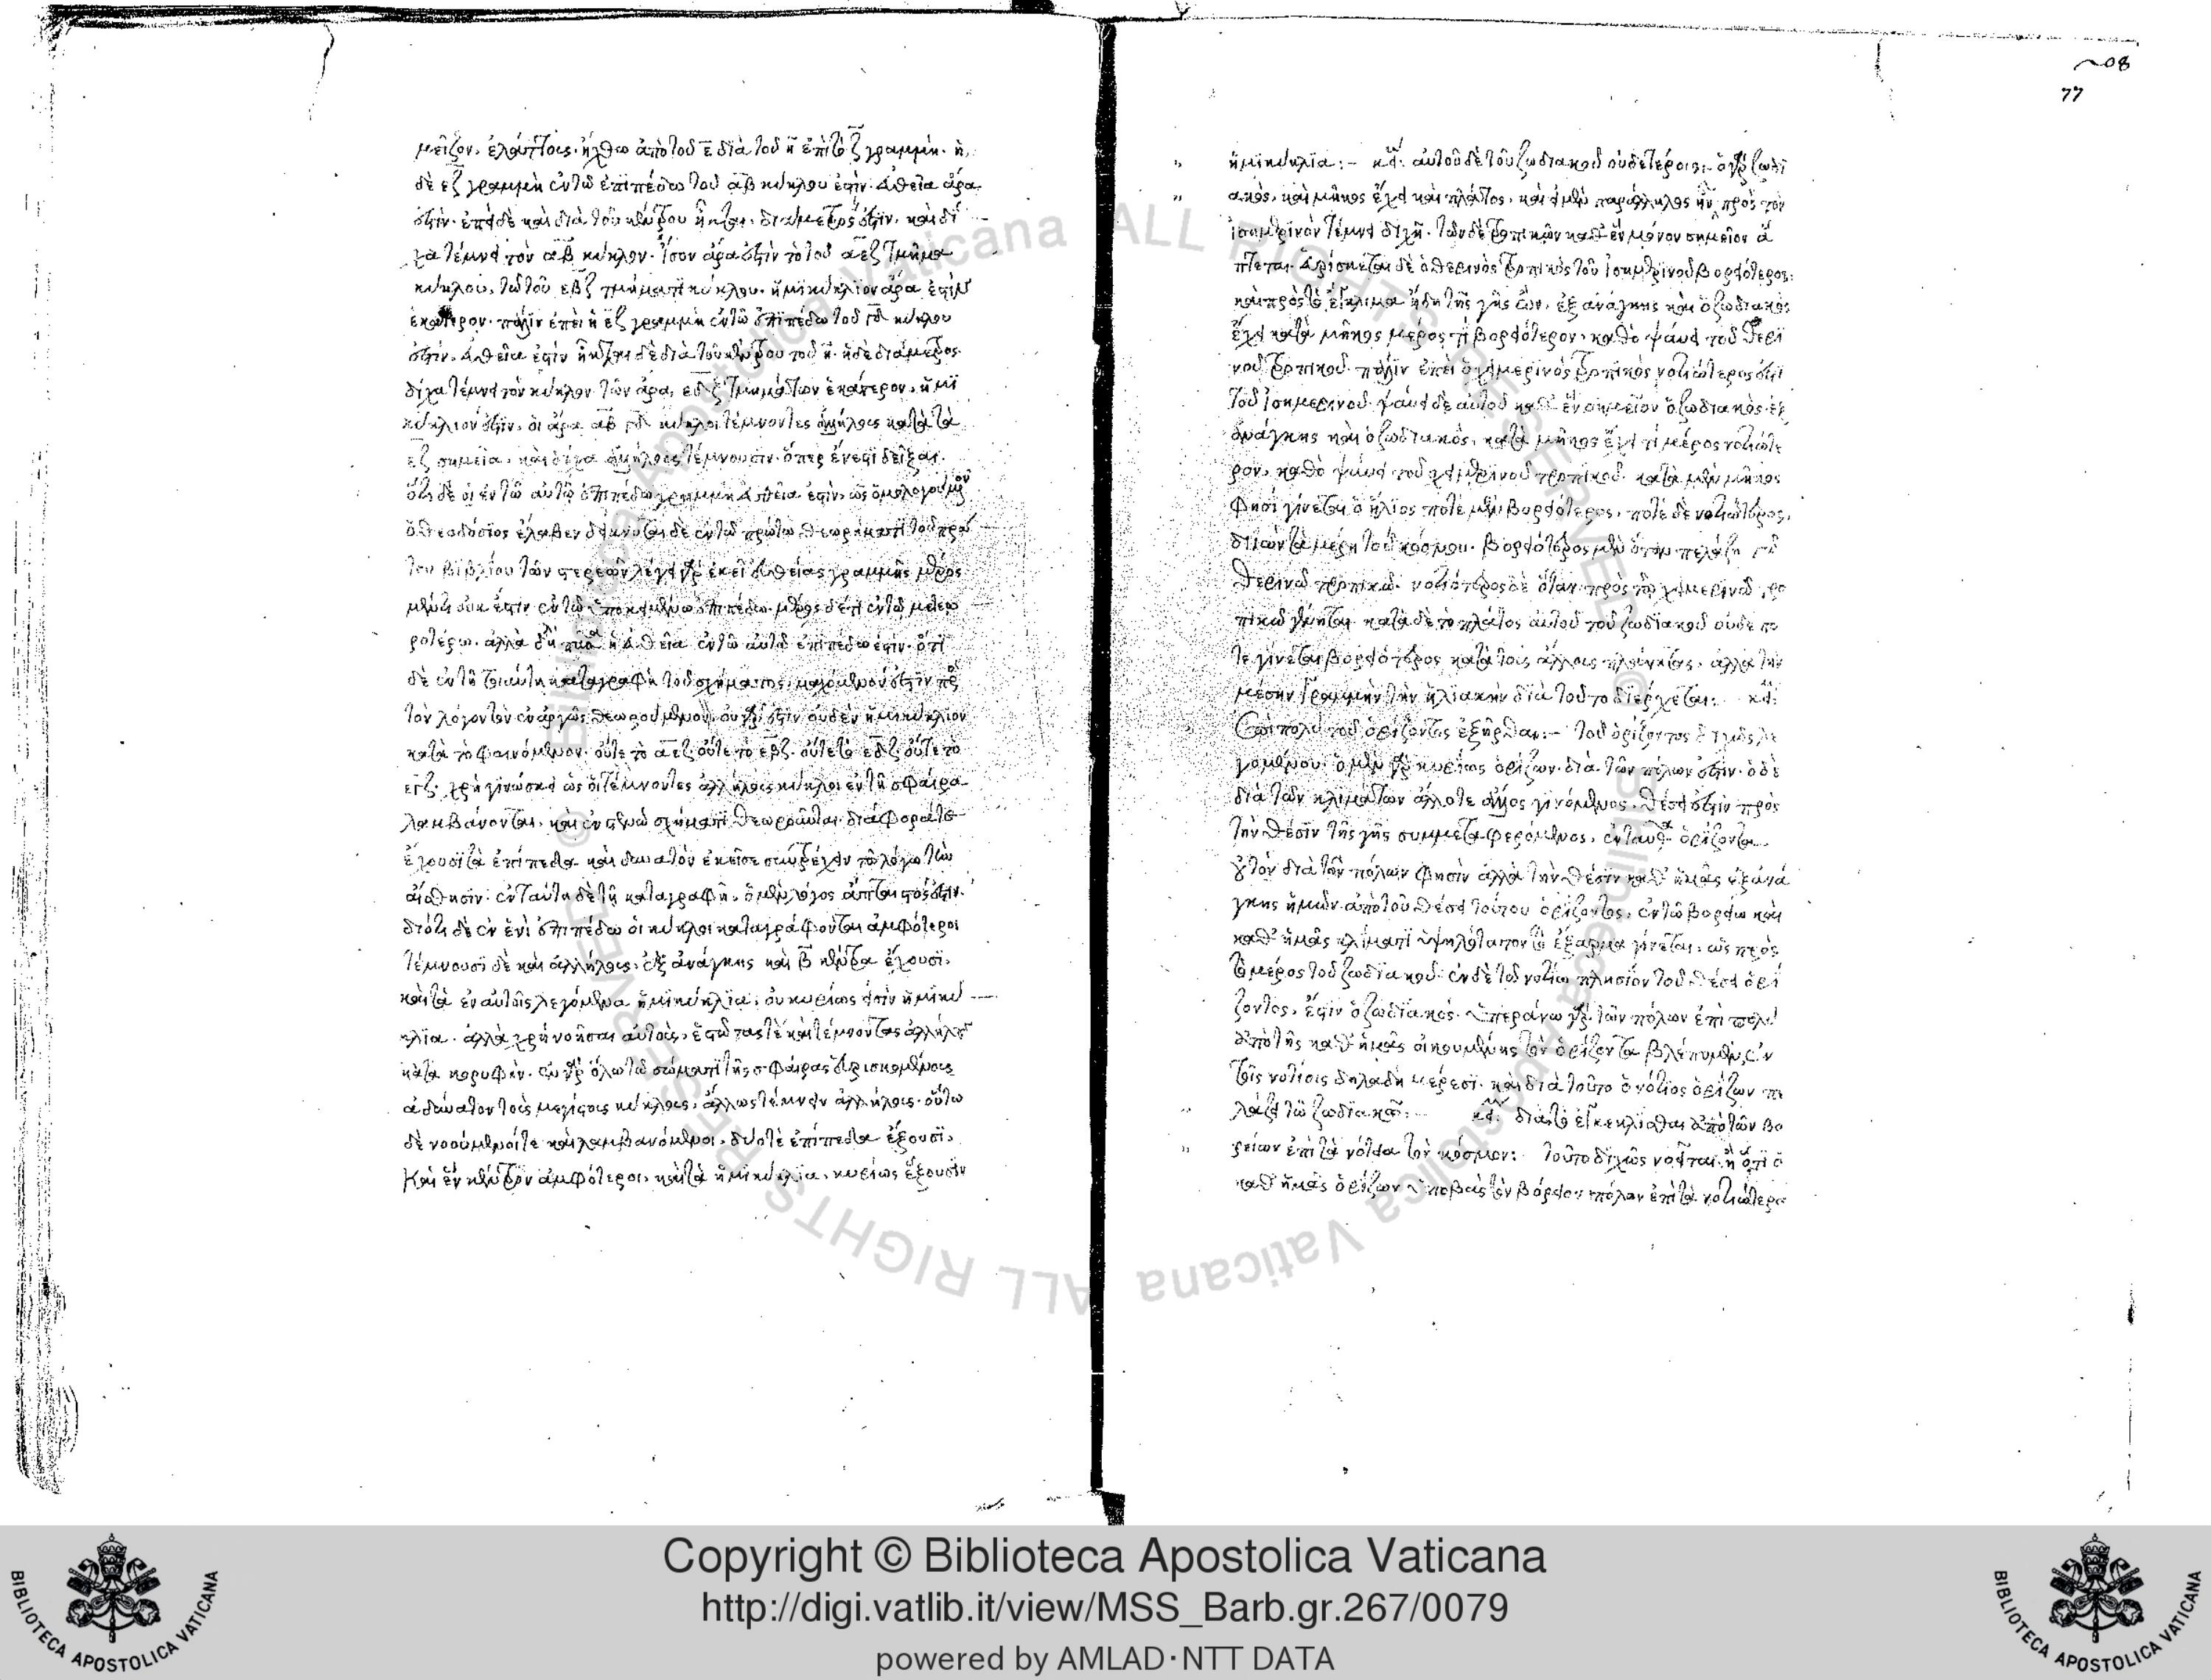 μεῖζον, ἐλάττοις. ἤχθω ἀπὸ τοῦ ε διὰ τοῦ η ἐπὶ τὸ ζ γραμμὴ. ἡ
δὲ εζ γραμμὴ ἐν τῶ ἐπιπέδω τοῦ αβ κύκλου ἐστὶν. εὐθεῖα ἄρα
ἐστὶν. ἐπεὶ δὲ καὶ διὰ τοῦ κέντρου ἧκται. διάμετρος ἐστὶν. καὶ δί
χα τέμνει τὸν αβ κύκλον. ἴσον ἄρα ἐστὶν τὸ τοῦ αεζ τμῆμα
κύκλου, τῶ τοῦ εβζ τμήματι κύκλου. ἡμικύκλιον ἄρα ἐστὶν
ἑκάτερον. πάλιν ἐπεὶ ἡ εζ γραμμὴ ἐν τῶ ἐπιπέδω τοῦ γδ κύκλου
ἐστὶν. εὐθεῖα ἐστὶν ἧκται δὲ διὰ τοῦ κέντρου τοῦ η. ἡ δὲ διάμετρος
δίχα τέμνει τὸν κύκλον τῶν ἄρα, εδζ τμημάτων ἑκάτερον, ἡμι
κύκλιον ἐστὶν. οἱ ἄρα αβ γδ κύκλοι τέμνοντες ἀλλήλους κατὰ τὰ
εζ σημεῖα, καὶ δίχα ἀλλήλους τέμνουσιν. ὅπερ ἔνεστι δεῖξαι.
ὅτι δὲ οἱ ἐν τῶ αὐτῶ ἐπιπέδω γραμμὴ εὐθεῖα ἐστὶν, ὡς ὁμολογούμενον
ὁ θεοδόσιος ἔλαβεν δείκνυται δὲ ἐν τῶ πρώτω θεωρήματι τοῦ πρώ
του βιβλίου τῶν στερεῶν λέγει γὰρ ἐκεῖ εὐθείας γραμμῆς μέρος
μέν τι οὐκ ἔστιν ἐν τῶ ὑποκειμένω ἐπιπέδω. μέρος δέ τι ἐν τῶ μετεω
ροτέρω. ἀλλὰ ἡ εὐθεῖα ἐν τῶ αὐτῶ ἐπιπέδω ἐστὶν. ὅτι
δὲ ἐν τῆ τοιαύτη καταγραφῆ τοῦ σχήματος, μαχόμενόν ἐστιν πρὸς
τὸν λόγον τὸν ἐναργῶς θεωρούμενον, οὐ γάρ ἐστιν οὐδὲν ἡμικύκλιον
κατὰ τὸ φαινόμενον. οὔτε τὸ αεζ οὔτε τὸ εβζ. οὔτε τὸ εδζ οὔτε τὸ
εγζ. χρὴ γινώσκειν ὡς οἱ τέμνοντες ἀλλήλους κύκλοι ἐν τῆ σφαίρα
λαμβάνονται, καὶ ἐν στερεῶ σχήματι θεωροῦνται. διάφορά τε
ἔχουσι τὰ ἐπίπεδα καὶ δυνατὸν ἐκεῖσε συντρέχειν τῶ λόγω τὴν
αἴσθησιν. ἐνταῦθα δὲ τῆ καταγραφῆ, ὁ μὲν λόγος ἄπταιστός ἐστιν.
διότι δὲ ἐν ἑνὶ ἐπιπέδω οἱ κύκλοι καταγράφονται ἀμφότεροι
τέμνουσι δὲ καὶ ἀλλήλους. ἐξ ἀνάγκης καὶ β κέντρα ἔχουσι.
καὶ τὰ ἐν αὐτοῖς λεγόμενα ἡμικύκλια, οὐ κυρίως εἰσὶν ἡμικύ
κλια. ἀλλὰ χρὴ νοῆσαι αὐτοὺς, ἑστῶτας τὲ καὶ τέμνοντας ἀλλήλους
κατὰ κορυφὴν. ἐν γὰρ ὅλω τῶ σώματι τῆς σφαίρας εὑρισκομένους
ἀδύνατον τοὺς μεγίστους κύκλους, ἄλλως τέμνειν ἀλλήλους. οὕτω
δὲ νοούμενοί τε καὶ λαμβανόμενοι, δύο τὲ ἐπίπεδα ἕξουσι.
καὶ ἓν κέντρον ἀμφότεροι, καὶ τὰ ἡμικύκλια, κυρίως ἕξουσιν
77
ἡμικύκλια:- αὐτοῦ δὲ τοῦ ζωδιακοῦ οὐδετέροις: ὁ γὰρ ζωδι
ακὸς, καὶ μῆκος ἔχει καὶ πλάτος, καὶ εἰ μὲν παράλληλος ἦν πρὸς τὸν
ἰσημερινὸν τέμνει διχῆ. τῶν δὲ τροπικῶν καθ' ἓν μόνον σημεῖον ἅ
πτεται. εὑρίσκεται δὲ ὁ θερινὸς τροπικὸς τοῦ ἰσημερινοῦ βορειότερος.
καὶ πρὸς τὸ ἔγκλιμα ἤδη τῆς γῆς ὢν, ἐξ ἀνάγκης καὶ ὁ ζωδιακὸς
ἔχει κατὰ μῆκος μέρος τι βορειότερον, καθὸ ψαύει τοῦ θερι
νοῦ τροπικοῦ. πάλιν ἐπεὶ ὁ χειμερινὸς τροπικὸς νοτιώτερος ἐστὶ
τοῦ ἰσημερινοῦ. ψαύει δὲ αὐτοῦ καθ' ἓν σημεῖον ὁ ζωδιακὸς. ἐξ
ἀνάγκης καὶ ὁ ζωδιακὸς, κατὰ μῆκος ἔχει τι μέρος νοτιώτε
ρον, καθὸ ψαύει τοῦ χειμερινοῦ τροπικοῦ. κατὰ μὲν μῆκος
φησὶ γίνεται ὁ ἥλιος ποτὲ μὲν βορειότερος, ποτὲ δὲ νοτιώτερος,
διιὼν τὰ μέρη τοῦ κόσμου. βορειότερος μὲν ὅταν πελάζη τῶ
θερινῶ τροπικῶ. νοτιότερος δὲ ὅταν πρὸς τῶ χειμερινῶ τρο
πικῶ γένηται κατὰ δὲ τὸ πλάτος αὐτοῦ τοῦ ζωδιακοῦ οὐδέ πο
τε γίνεται βορειότερος κατὰ τοὺς ἄλλους πλάνητας. ἀλλὰ τὴν
μέσην γραμμὴν τὴν ἡλιακὴν διὰ τοῦτο διέρχεται:
ἐπὶ πολὺ τοῦ ὁρίζοντος ἐξῆρθαι:- τοῦ ὁρίζοντος διχῶς λε
γομένου. ὁ μὲν γὰρ κυρίως ὁρίζων διὰ τῶν πόλων ἐστὶν. ὁ δὲ
διὰ τῶν κλιμάτων ἄλλοτε ἄλλος γινόμενος. θέσει ἐστὶν πρὸς
τὴν θέσιν τῆς γῆς συμμεταφερόμενος, ἐνταῦθα ὁρίζοντα
οὐ τὸν διὰ τῶν πόλων φησὶν ἀλλὰ τὴν θέσιν καθ' ἡμᾶς ἐξ ἀνά
γκης ἡμῶν ἀπὸ τοῦ θέσει τούτου ὁρίζοντος, ἐν τῶ βορείω καὶ
καθ' ἡμᾶς κλίματι ὑψηλότατον τὸ ἔξαρμα γίνεται, ὡς πρὸς
τὸ μέρος τοῦ ζωδιακοῦ: ἐν δὲ τῶ νοτίω πλησίον τοῦ θέσει ὁρί
ζοντος, ἐστὶν ὁ ζωδιακὸς. ὑπεράνω γὰρ τῶν πόλων ἐπὶ πολὺ
ἀπὸ τῆς καθ' ἡμᾶς οἰκουμένης τὸν ὁρίζοντα βλέπομεν, ἐν
τοῖς νοτίοις δηλαδὴ μέρεσι. καὶ διὰ τοῦτο ὁ νότιος ὁρίζων πε
λάζει τῶ ζωδιακῶ:- διὰ τὸ ἐγκεκλίσθαι ἀπὸ τῶν βο
ρείων ἐπὶ τὰ νότια τὸν κόσμον: τοῦτο διχῶς νοεῖται. ἢ ὅτι ὁ
καθ' ἡμᾶς ὁρίζων ὑποβὰς τὸν βόρειον πόλον ἐπὶ τὰ νοτιώτερα
Copyright © Biblioteca Apostolica Vaticana
http://digi.vatlib.it/view/MSS_Barb.gr.267/0079
powered by AMLAD·NTT DATA
BIBLIOTECA APOSTOLICA VATICANA
BIBLIOTECA APOSTOLICA VATICANA